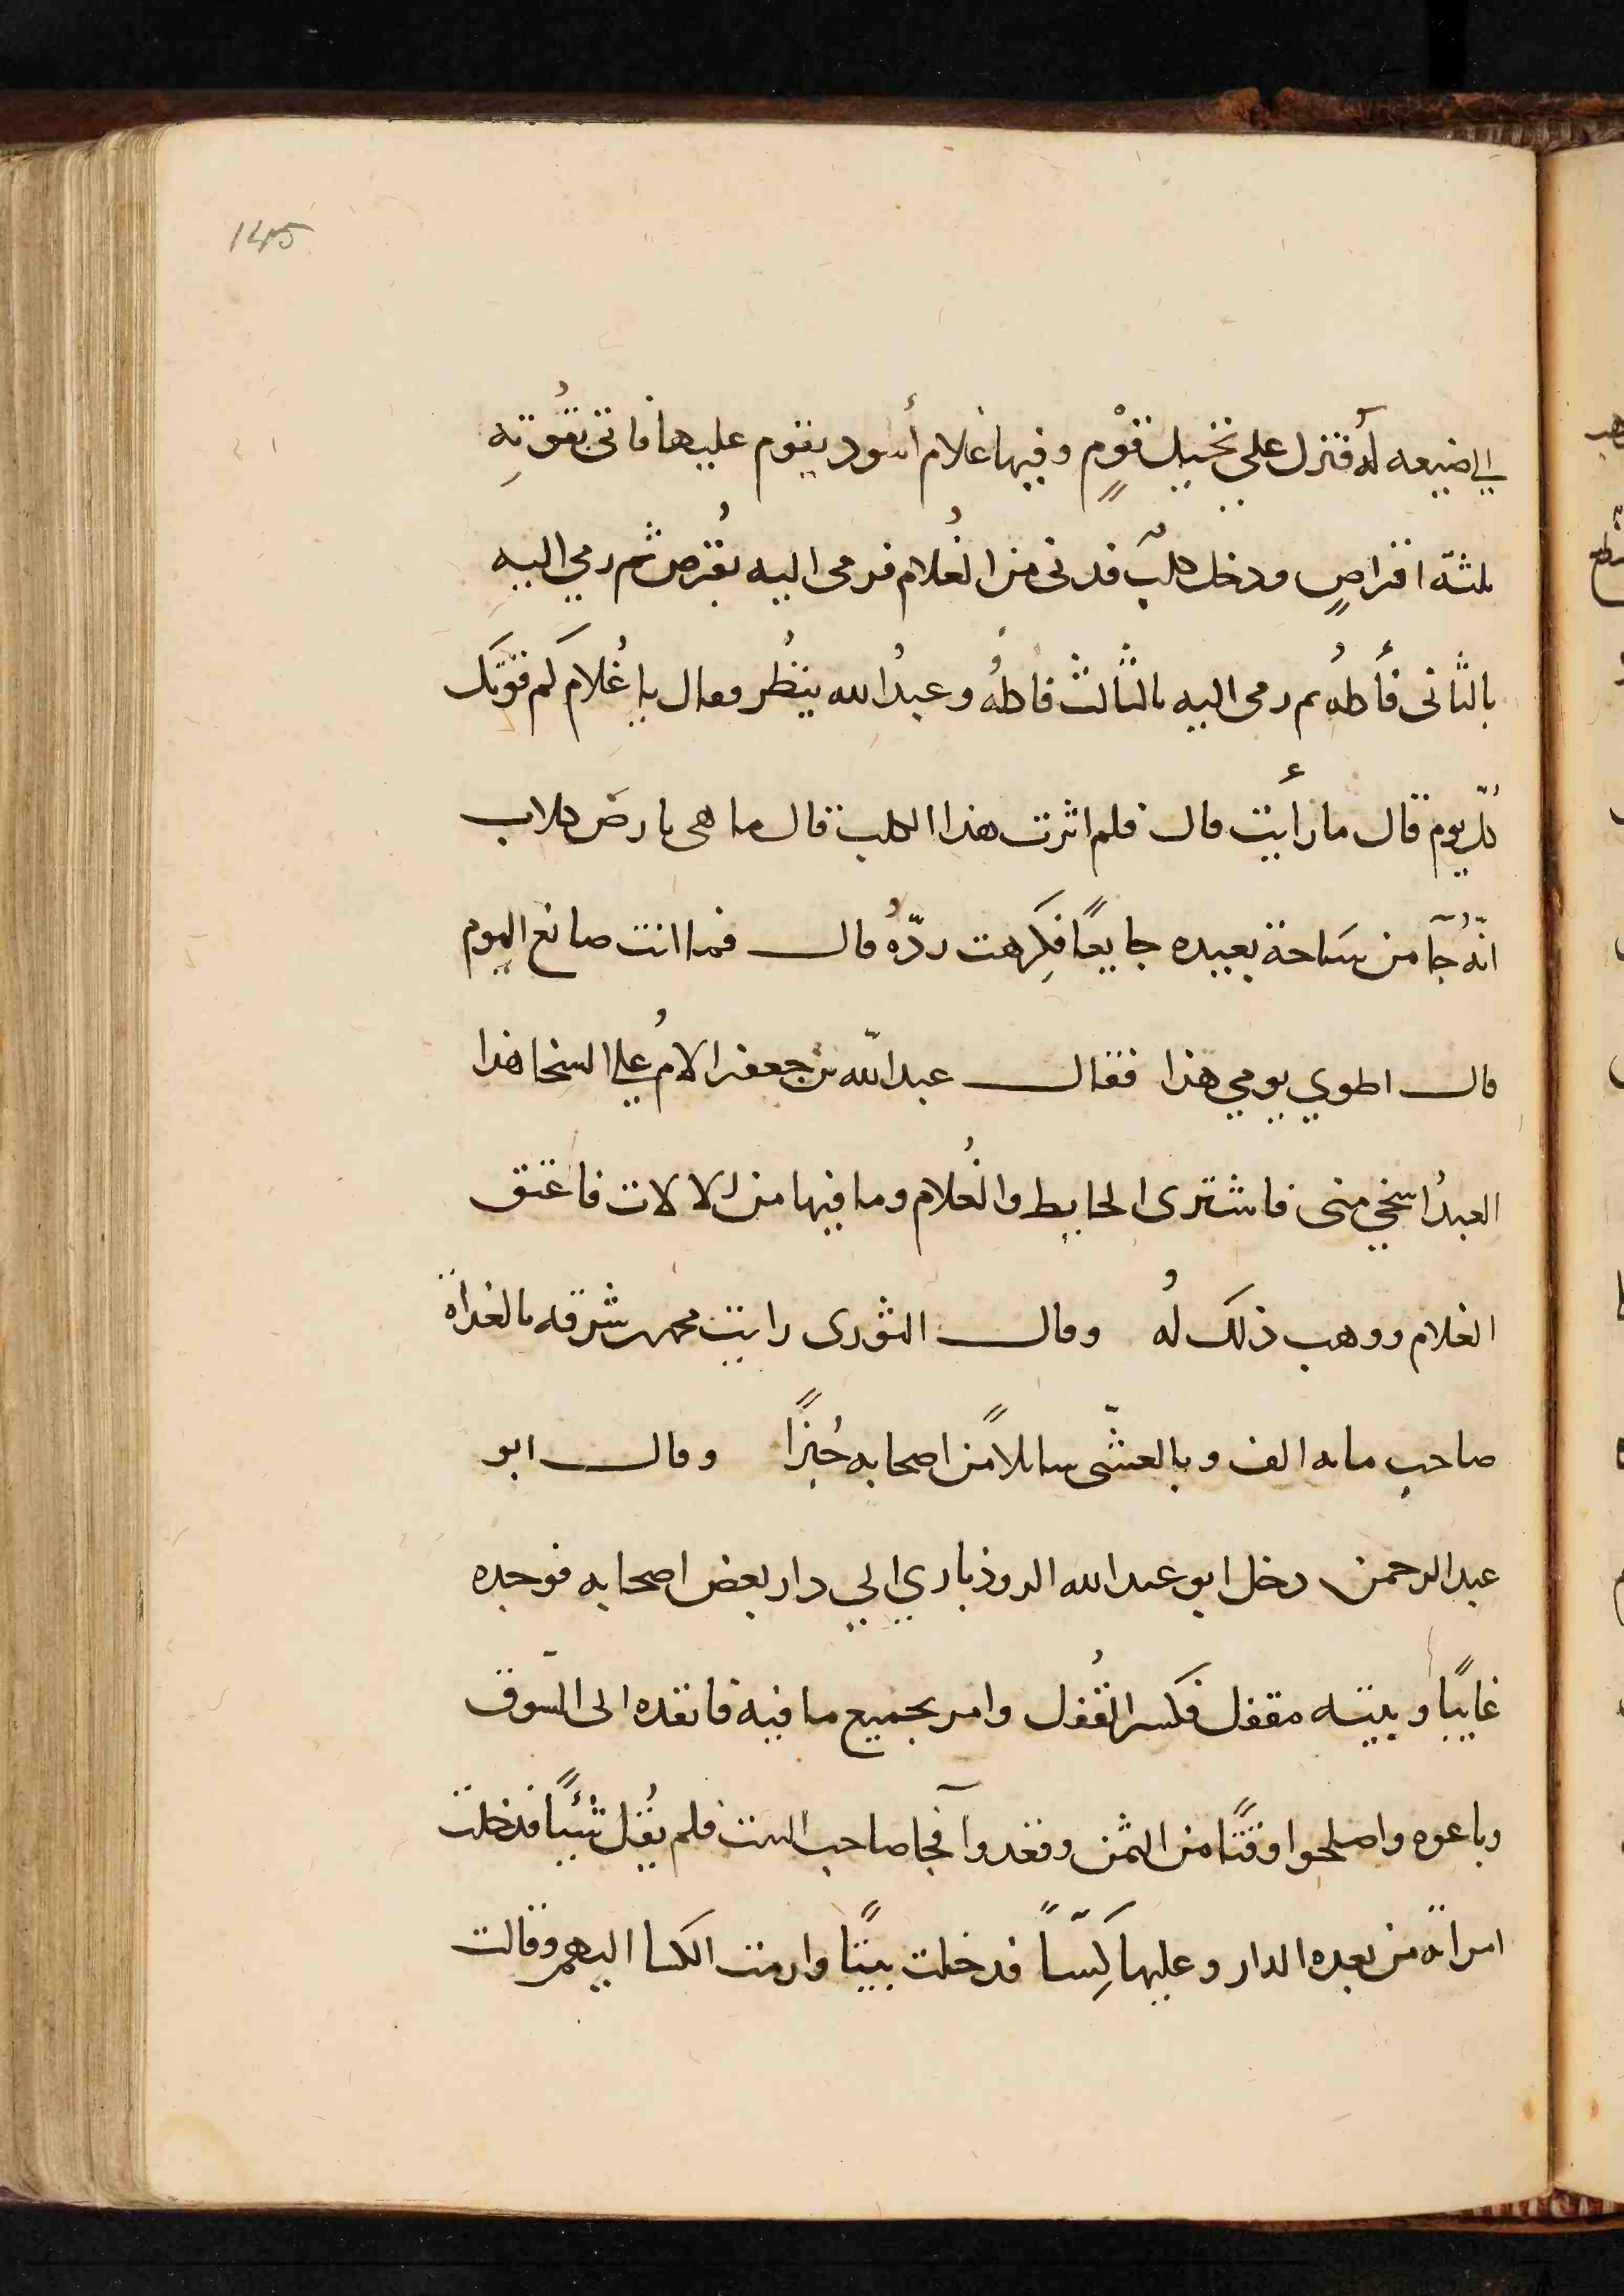 145
الي ضيعه له فنزل علي نخيل قوم وفيها غلام أسود يقوم عليها فاتى بقُوته
بلثة اقراصٍ ودخل كلبٌ فدنى من الغُلام فرمى اليه بقُرص ثم رمي اليه
بالثانى فأكلهُ ثم رمى اليه بالثالث فاكلهُ وعبدُ الله ينظُر فقال يا غُلام كم قوتك
كلّ يوم قال ما رأيت قال فلم اثرت هذا الكلب قال ما هى بارض كلاب
انّهُ جآ من مسَاحة بعيده جايعًا فكِرهت ردّهُ قال فما انت صانع اليوم
قال اطوي يومي هذا فقال عبد الله بن جعفر الامُ علي السخا هذا
العبدُ اسخي منى فاشترى الحايط والغُلام وما فيها من الالات فاعتق
الغلام ووهب ذلك لُه وقال الثورى رايت محمد شرقه بالغداة
صاحب مايه الف وبالعشّى سايلاً من اصحابه خُبزًا وقال ابو
عبد الرحمن دخل ابو عبد الله الروذباري الي دار بعض اصحابه فوجده
غايبًا وبيته مقفل فكسر القُفل وامر بجميع ما فيه فانفده الى السّوق
وباعوه واصلحوا وقتًا من الثمن وقعدوا فجآ صاحب البيت فلم يقُل شئيًا فدخلت
امراته من بعده الدار وعليها كِسّاً فدخلت بيتًا وارمت الكسا اليهم وقالت